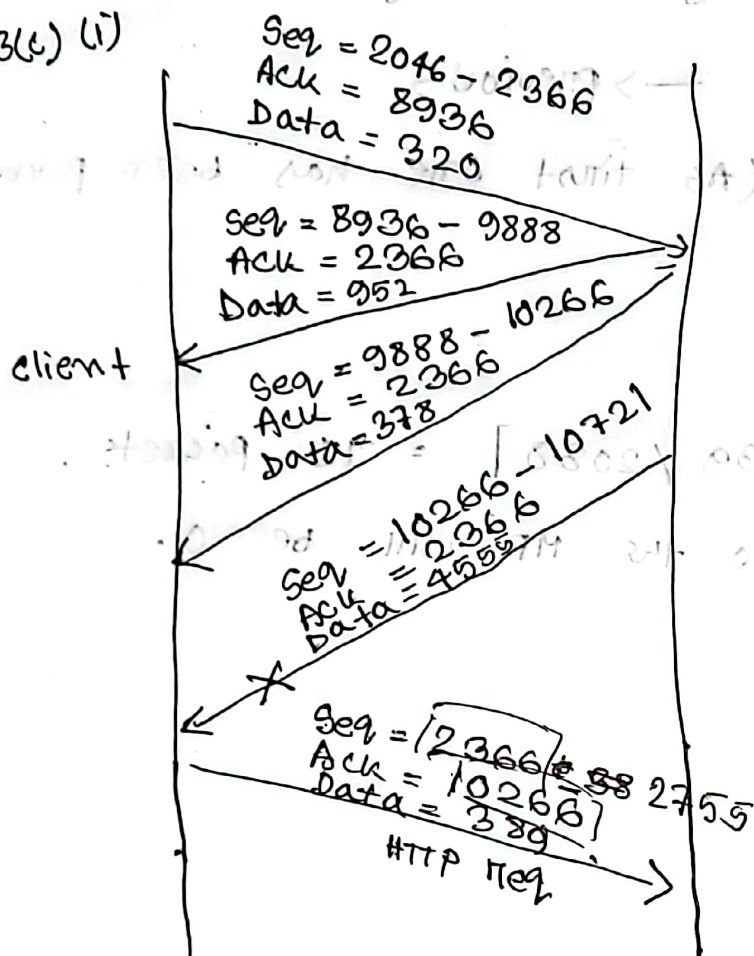 3(c) (i)
Seq = 2046 - 2366
Ack = 8936
Data = 320
Seq = 8936 - 9888
Ack = 2366
Data = 952
client
Seq = 9888 - 10266
Ack = 2366
Data = 378
Seq = 10266 - 10721
Ack = 2366
Data = 4555
Seq = 2366 - 2755
Ack = 10266
Data = 389
HTTP req